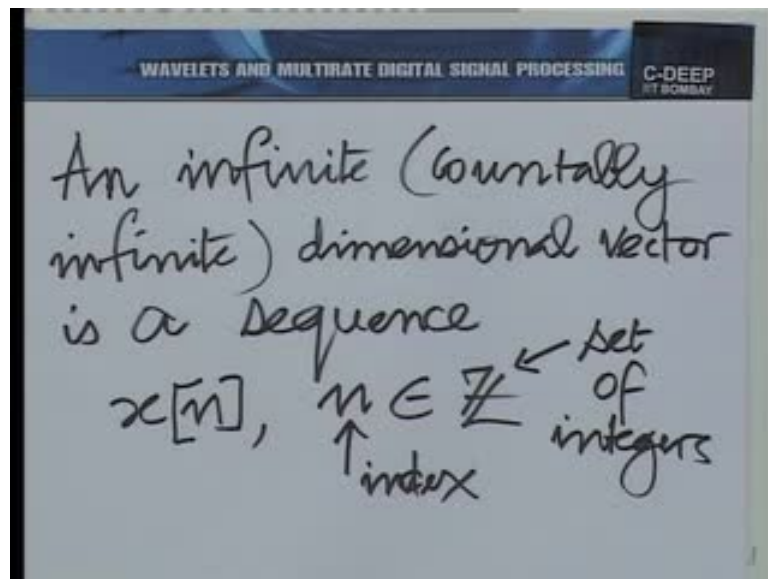 WAVELETS AND MULTIRATE DIGITAL SIGNAL PROCESSING
C-DEEP
IIT BOMBAY
An infinite (countably
infinite) dimensional vector
is a sequence
x[n], n ∈ ℤ ← set
of
integers
↑
index